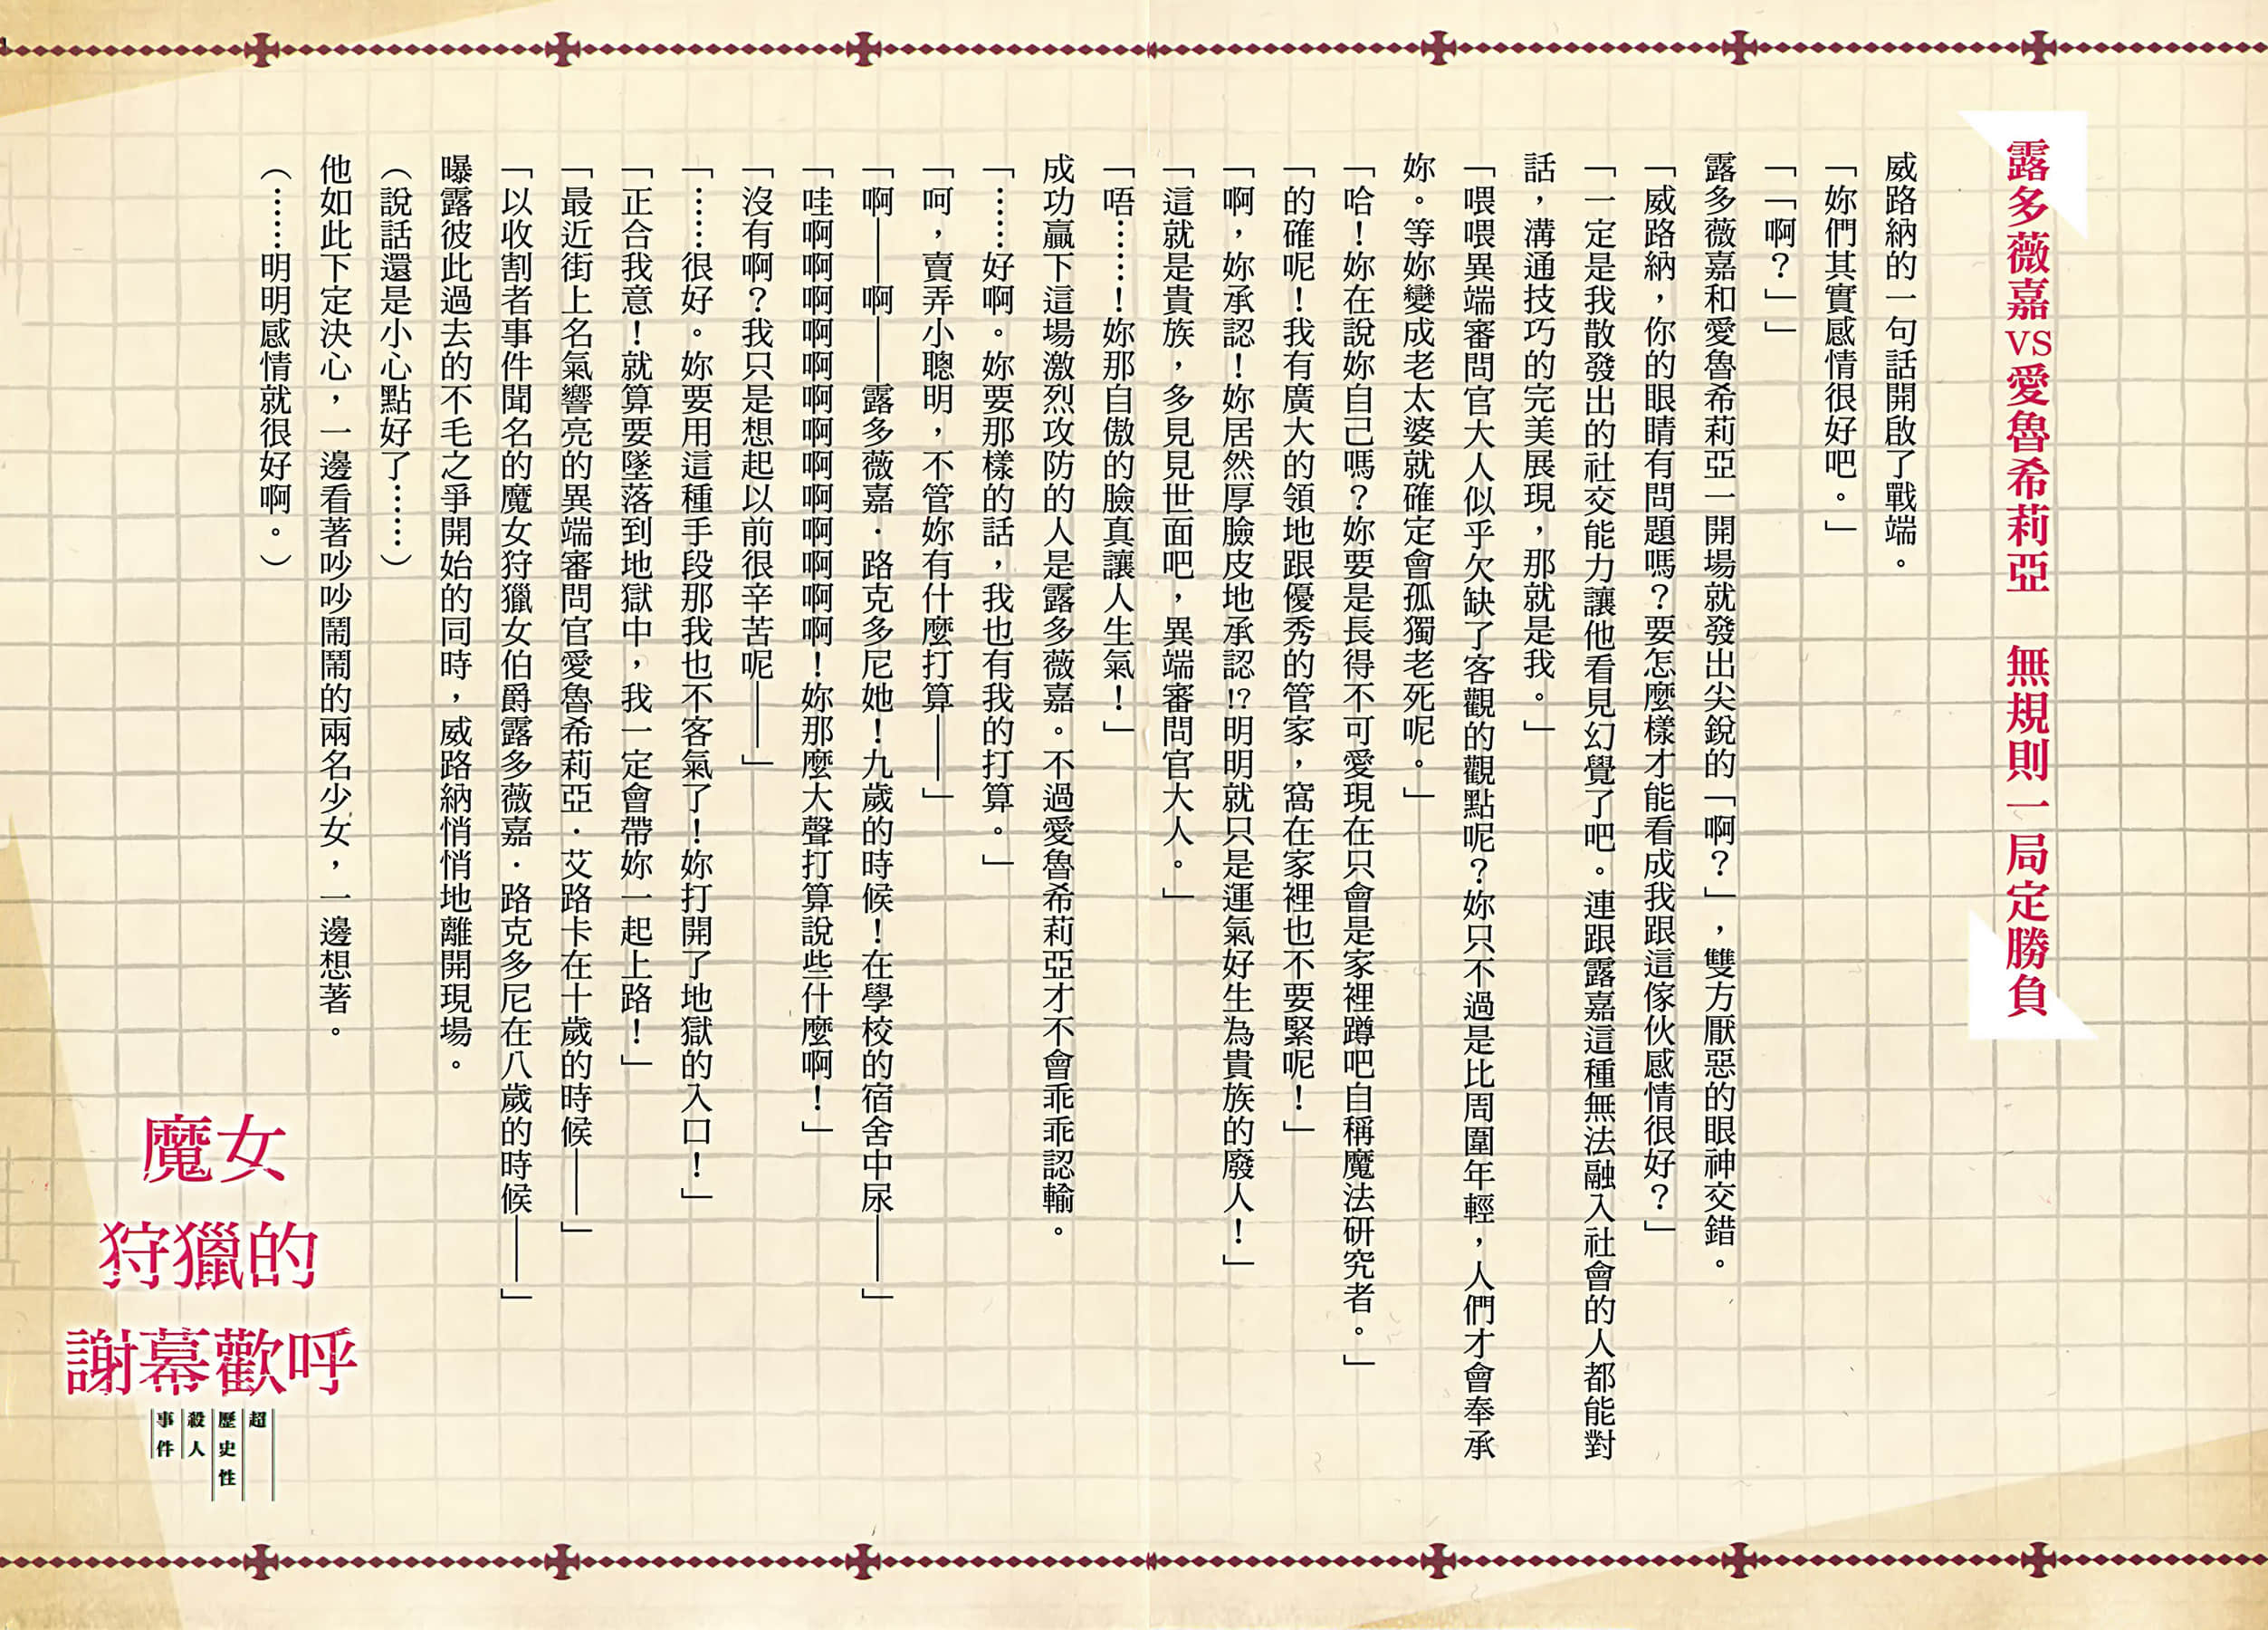 露多薇嘉VS愛魯希莉亞　無規則一局定勝負
威路納的一句話開啟了戰端。
「妳們其實感情很好吧。」
「「啊？」」
露多薇嘉和愛魯希莉亞一開場就發出尖銳的「啊？」，雙方厭惡的眼神交錯。
「威路納，你的眼睛有問題嗎？要怎麼樣才能看成我跟這傢伙感情很好？」
「一定是我散發出的社交能力讓他看見幻覺了吧。連跟露嘉這種無法融入社會的人都能對
話，溝通技巧的完美展現，那就是我。」
「喂喂異端審問官大人似乎欠缺了客觀的觀點呢？妳只不過是比周圍年輕，人們才會奉承
妳。等妳變成老太婆就確定會孤獨老死呢。」
「哈！妳在說妳自己嗎？妳要是長得不可愛現在只會是家裡蹲吧自稱魔法研究者。」
「的確呢！我有廣大的領地跟優秀的管家，窩在家裡也不要緊呢！」
「啊，妳承認！妳居然厚臉皮地承認!?明明就只是運氣好生為貴族的廢人！」
「這就是貴族，多見見世面吧，異端審問官大人。」
「唔……！妳那自傲的臉真讓人生氣！」
成功贏下這場激烈攻防的人是露多薇嘉。不過愛魯希莉亞才不會乖乖認輸。
「……好啊。妳要那樣的話，我也有我的打算。」
「呵，賣弄小聰明，不管妳有什麼打算——」
「啊——啊——露多薇嘉．路克多尼她！九歲的時候！在學校的宿舍中尿——」
「哇啊啊啊啊啊啊啊啊啊啊啊啊啊！妳那麼大聲打算說些什麼啊！」
「沒有啊？我只是想起以前很辛苦呢——」
「……很好。妳要用這種手段那我也不客氣了！妳打開了地獄的入口！」
「正合我意！就算要墜落到地獄中，我一定會帶妳一起上路！」
「最近街上名氣響亮的異端審問官愛魯希莉亞．艾路卡在十歲的時候——」
「以收割者事件聞名的魔女狩獵女伯爵露多薇嘉．路克多尼在八歲的時候——」
曝露彼此過去的不毛之爭開始的同時，威路納悄悄地離開現場。
（說話還是小心點好了……）
他如此下定決心，一邊看著吵吵鬧鬧的兩名少女，一邊想著。
（……明明感情就很好啊。）
魔女
狩獵的
謝幕歡呼
超
歷史性
殺人
事件